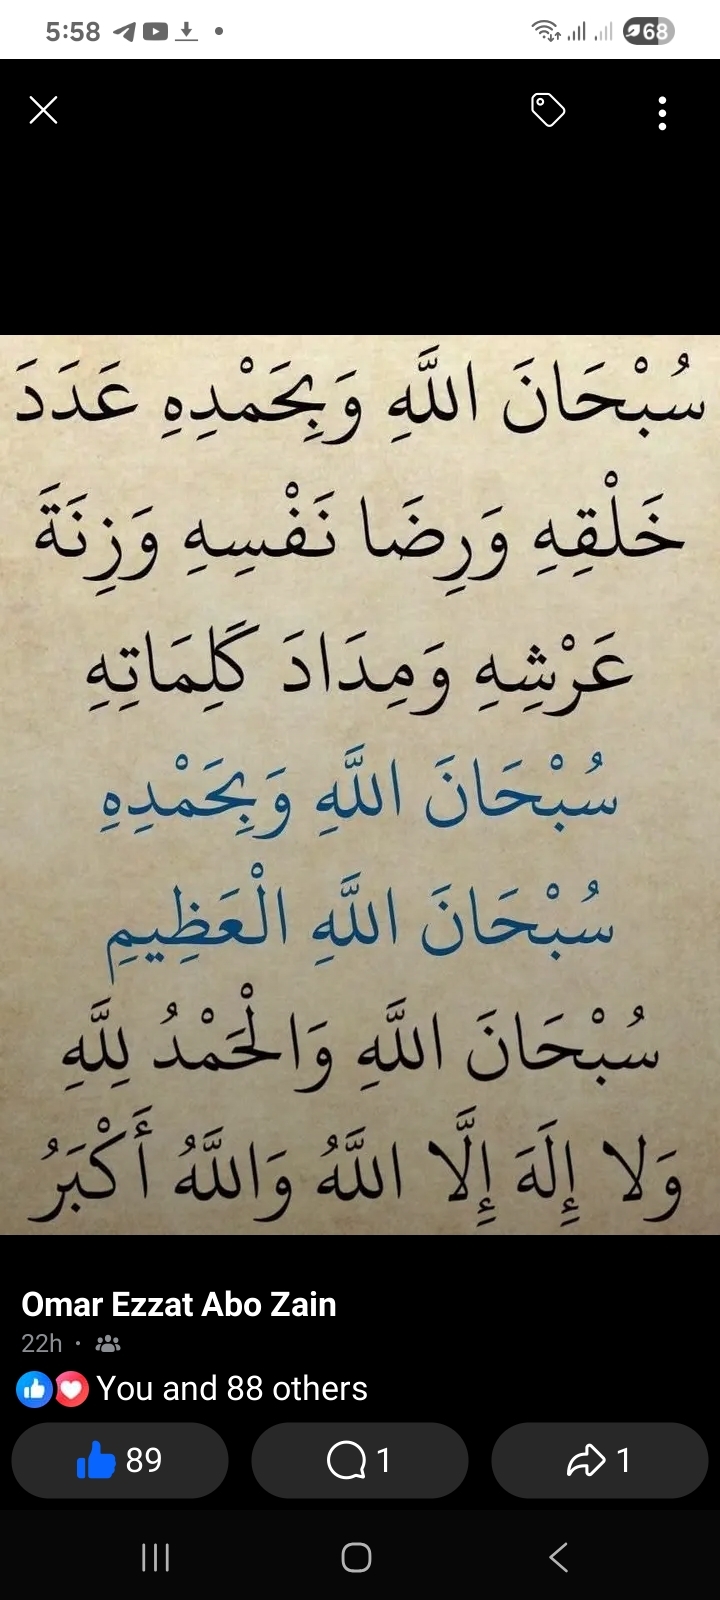 5:58
68
سُبْحَانَ اللَّهِ وَبِحَمْدِهِ عَدَدَ
خَلْقِهِ وَرِضَا نَفْسِهِ وَزِنَةَ
عَرْشِهِ وَمِدَادَ كَلِمَاتِهِ
سُبْحَانَ اللَّهِ وَبِحَمْدِهِ
سُبْحَانَ اللَّهِ الْعَظِيمِ
سُبْحَانَ اللَّهِ وَالْحَمْدُ لِلَّهِ
وَلا إِلَهَ إِلَّا اللَّهُ وَاللَّهُ أَكْبَرُ
Omar Ezzat Abo Zain
22h ·
You and 88 others
89 1 1